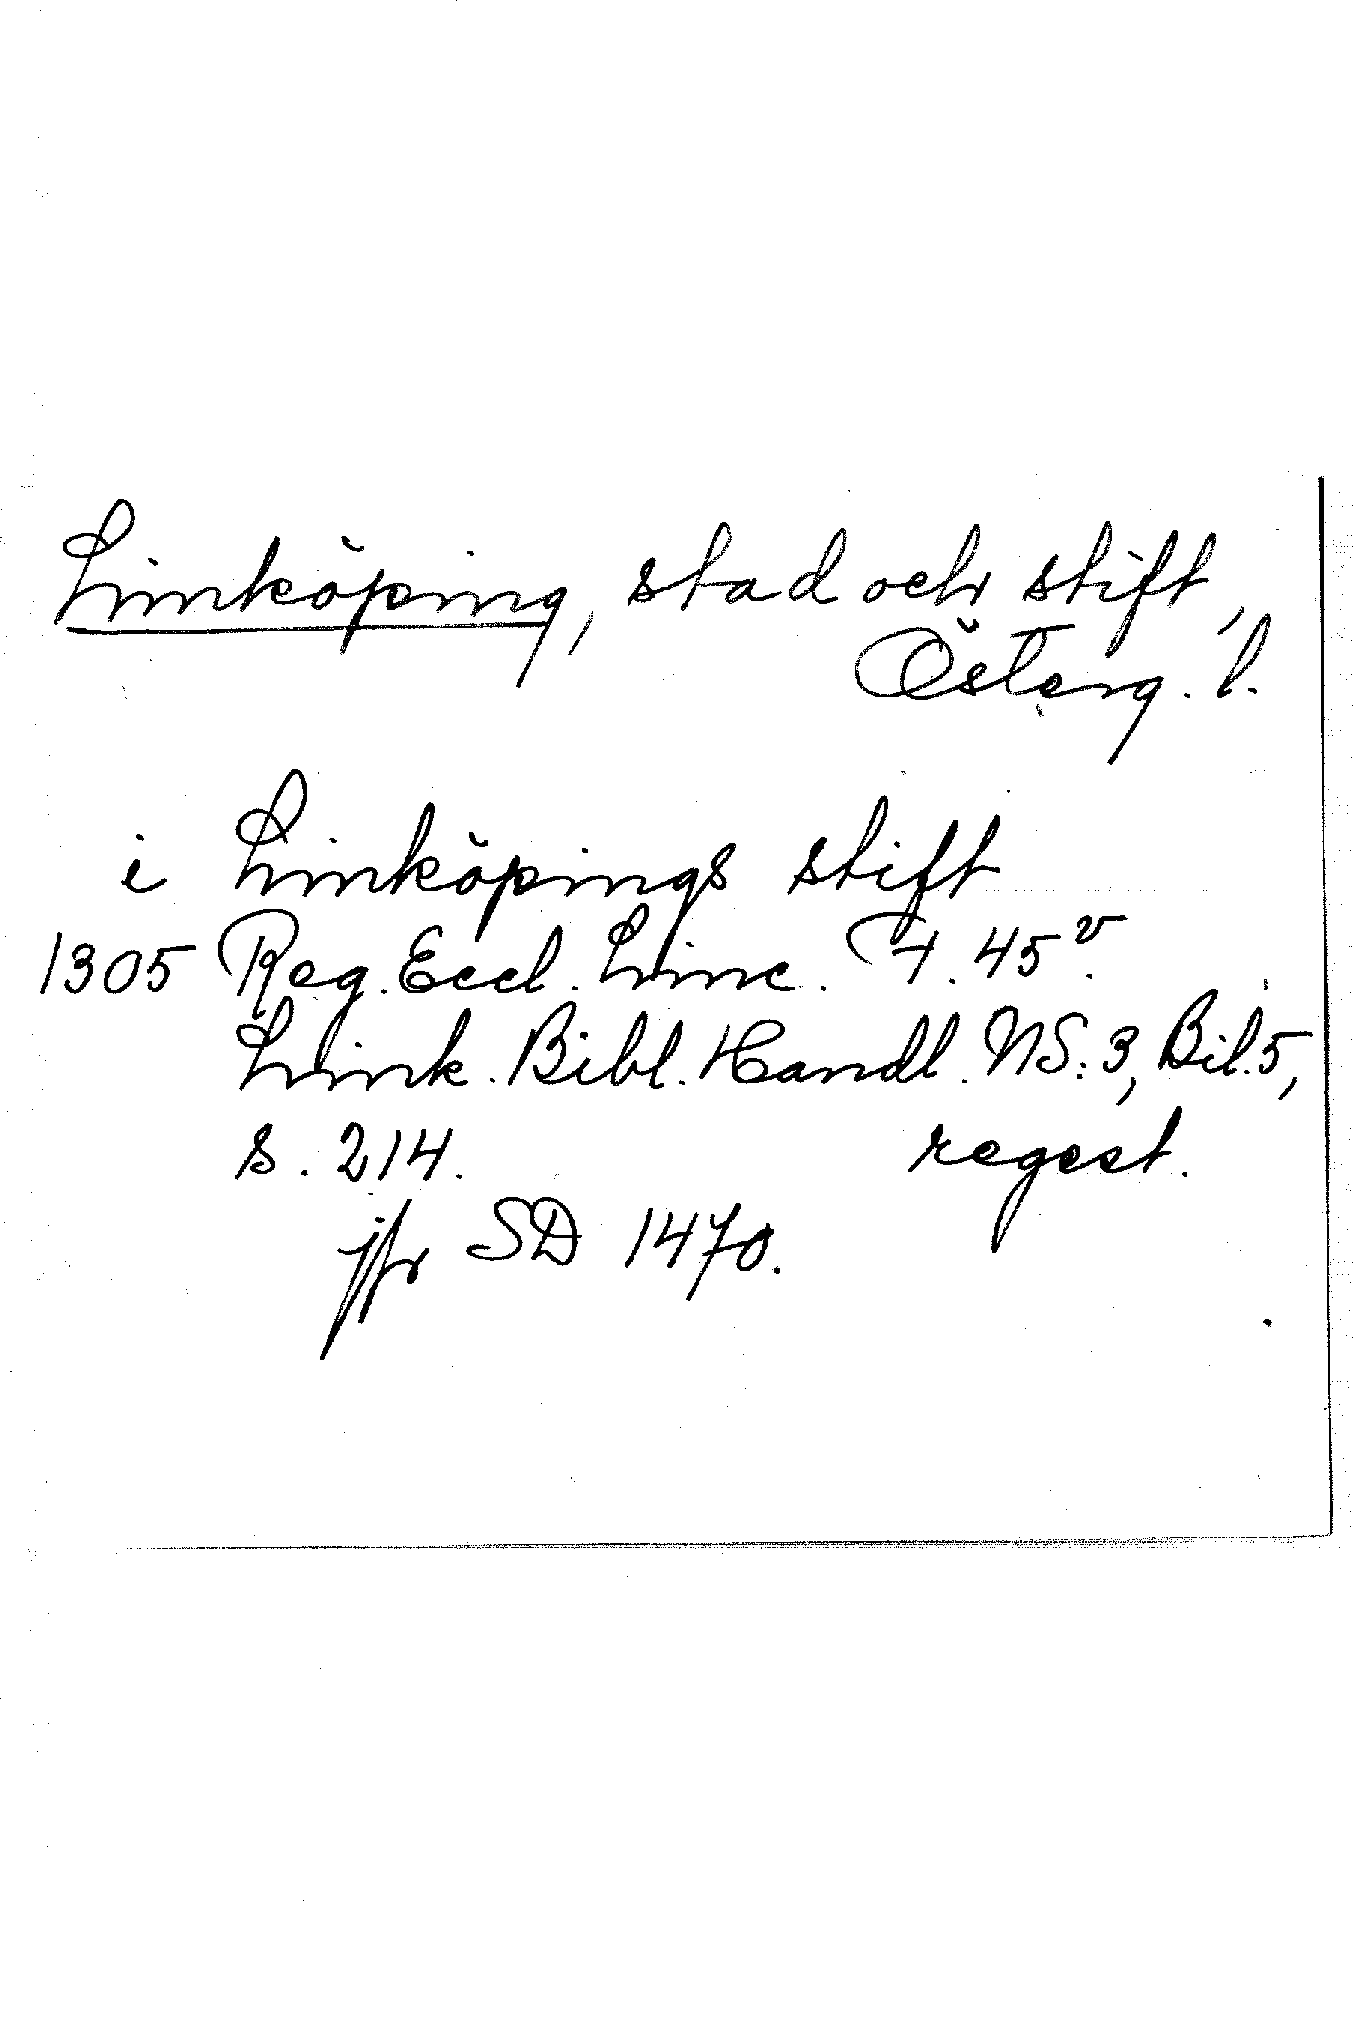 Linköping, stad och stift,
Österg. l.
i Linköpings stift
1305 Reg. Eccl. Linc. F. 45v.
Link. Bibl. Handl. NS: 3, Bil. 5,
s. 214. regest.
jfr SD 1470.